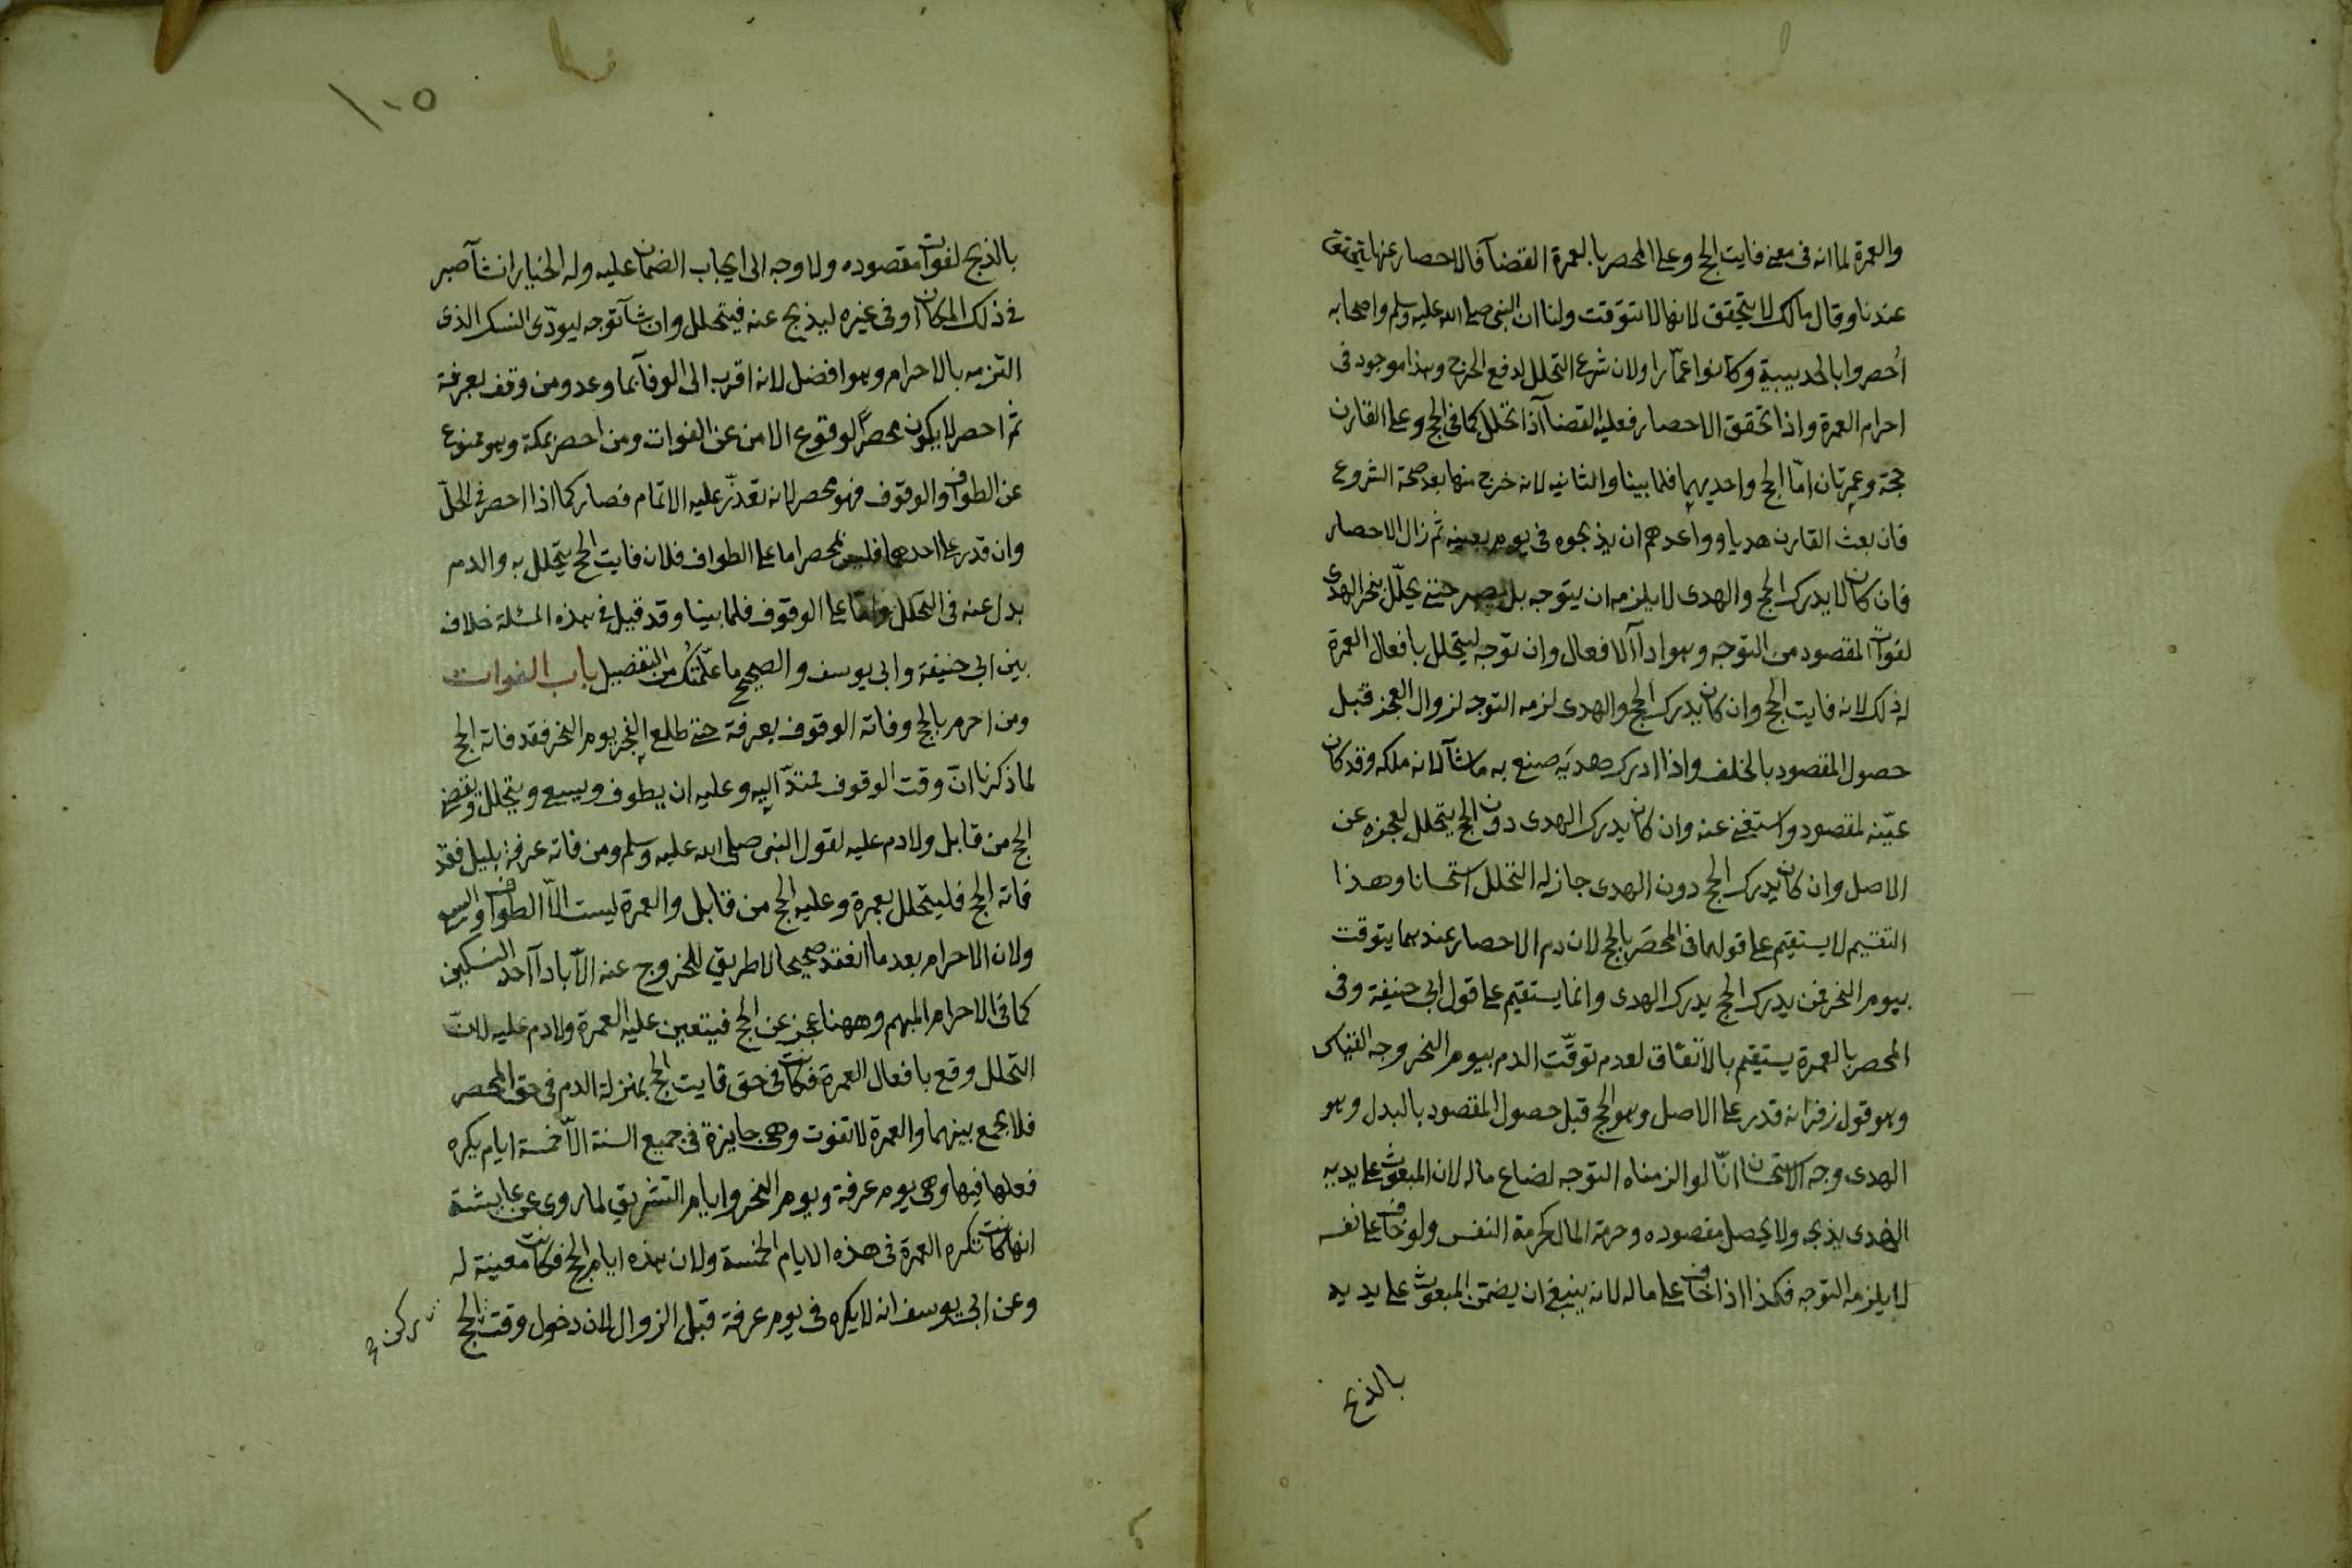 والعمرة لما انه فى معنى فايت الحج وعلى المحصر بالعمرة القضآ فالاحصار عنها يتحقق
عندنا وقال مالك لا يتحقق لانها لا تتوقت ولنا ان النبى صلى الله عليه وسلم واصحابه
اُحصروا بالحديبية وكانوا عمّارا ولان شرع التحلل لدفع الحرج وهذا موجود فى
احرام العمرة واذا تحقق الاحصار فعليه القضآ اذا تحلل كما فى الحج وعلى القارن
حجة وعمرتان امّا الحج واحديهما فلما بينا والثانيه لانه خرج منها بعد صحة الشروع
فان بعث القارن هديا وواعدهم ان يذبحوه فى يوم بعينه ثم زال الاحصار
فان كان لا يدرك الحج والهدى لا يلزمه ان يتوجه بل يصبر حتى يحلّل بنحر الهدى
لفوات المقصود من التوجه وهو ادآ الافعال وان توجه ليتحلل بافعال العمرة
له ذلك لانه فايت الحج وان كان يدرك الحج والهدى لزمه التوجه لزوال العجز قبل
حصول المقصود بالخلف واذا ادرك هديَه صنع به ما شآ لانه ملكه وقد كان
عيّنه لمقصود واستغنى عنه وان كان يدرك الهدى دون الحج يتحلل لعجزه عن
الاصل وان كان يدرك الحج دون الهدى جاز له التحلل استحسانا وهذا
التقسيم لا يستقيم على قولهما فى المحصَر بالحج لان دم الاحصار عندهما يتوقت
بيوم النحر فمن يدرك الحج يدرك الهدى وانما يستقيم على قول ابى حنيفة وفى
المحصر بالعمرة يستقيم بالاتفاق لعدم توقّت الدم بيوم النحر وجه القياس
وهو قول زفر انه قدر على الاصل وهو الحج قبل حصول المقصود بالبدل وهو
الهدى وجه الاستحسان انّا لو الزمناه التوجه لضاع ماله لان المبعوث على يديه
الهدى يذبحه ولا يحصل مقصوده وحرمة المال كحرمة النفس ولو خاف على نفسه
لا يلزمه التوجه فكذا اذا خاف على ماله لانه ينبغى ان يضمن المبعوث على يديه
بالذبح
١٠٥
بالذبح لفوات مقصوده ولا وجه الى ايجاب الضمان عليه وله الخيار ان شآ صبر
فى ذلك المكان او فى غيره ليذبح عنه فيتحلل وان شآ توجه ليودّى النسك الذى
التزمه بالاحرام وهو افضل لانه اقرب الى الوفآ بما وعد ومن وقف بعرفة
ثم احصر لا يكون محصرًا لوقوع الامن عن الفوات ومن احصر بمكة وهو ممنوع
عن الطواف والوقوف فهو محصر لانه تعذّر عليه الاتمام فصار كما اذا احصر فى الحلّ
وان قدر على احدهما فليس بمحصر اما على الطواف فلان فايت الحج يتحلل به والدم
بدل عنه فى التحلل وامّا على الوقوف فلما بينا وقد قيل فى هذه المسئلة خلاف
بين ابى حنيفة وابى يوسف والصحيح ما علّمتُك من التفصيل باب الفوات
ومن احرم بالحج وفاته الوقوف بعرفة حتى طلع الفجر يوم النحر فقد فاته الحج
لما ذكرنا انّ وقت الوقوف يمتدّ اليه وعليه ان يطوف ويسعى ويتحلل ويقضى
الحج من قابل ولا دم عليه لقول النبى صلى الله عليه وسلم ومن فاته عرفة بليل فقد
فاته الحج فليتحلل بعمرة وعليه الحج من قابل والعمرة ليست الاّ الطواف والسعى
ولان الاحرام بعد ما انعقد صحيحا لا طريق للخروج عنه الاّ بادآ احد النسكين
كما فى الاحرام المبهم وههنا عجز عن الحج فيتعين عليه العمرة ولا دم عليه لانّ
التحلل وقع بافعال العمرة فكانت فى حق فايت الحج بمنزلة الدم فى حق المحصر
فلا يجمع بينهما والعمرة لا تفوت وهى جايزة فى جميع السنة الاّ خمسة ايام يكره
فعلها فيها وهى يوم عرفة ويوم النحر وايام التشريق لما روى عن عايشة
انها كانت تكره العمرة فى هذه الايام الخمسة ولان هذه ايام الحج فكانت معينة له
وعن ابى يوسف انه لا يكره فى يوم عرفة قبل الزوال لان دخول وقت الحج